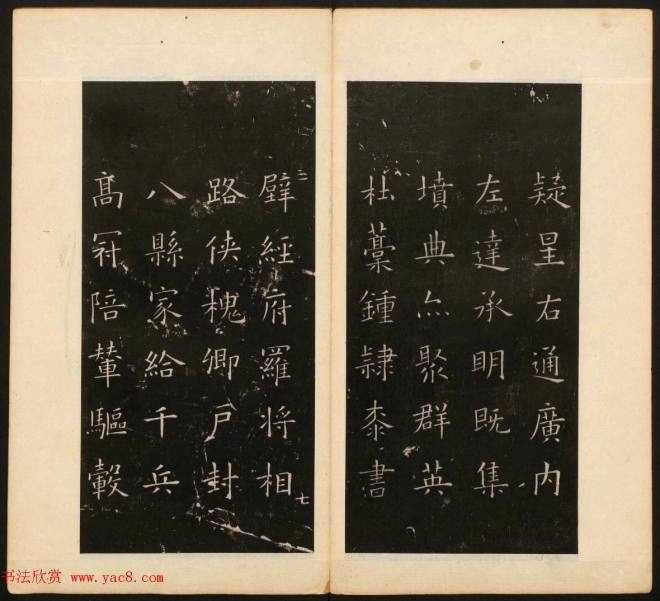 疑星右通廣内
左達承明既集
墳典亦聚群英
杜藁鍾隷柰書
壁經府羅将相
路俠槐卿戶封
八縣家給千兵
高冠陪輦驅轂
二
七
书法欣赏 www.yac8.com